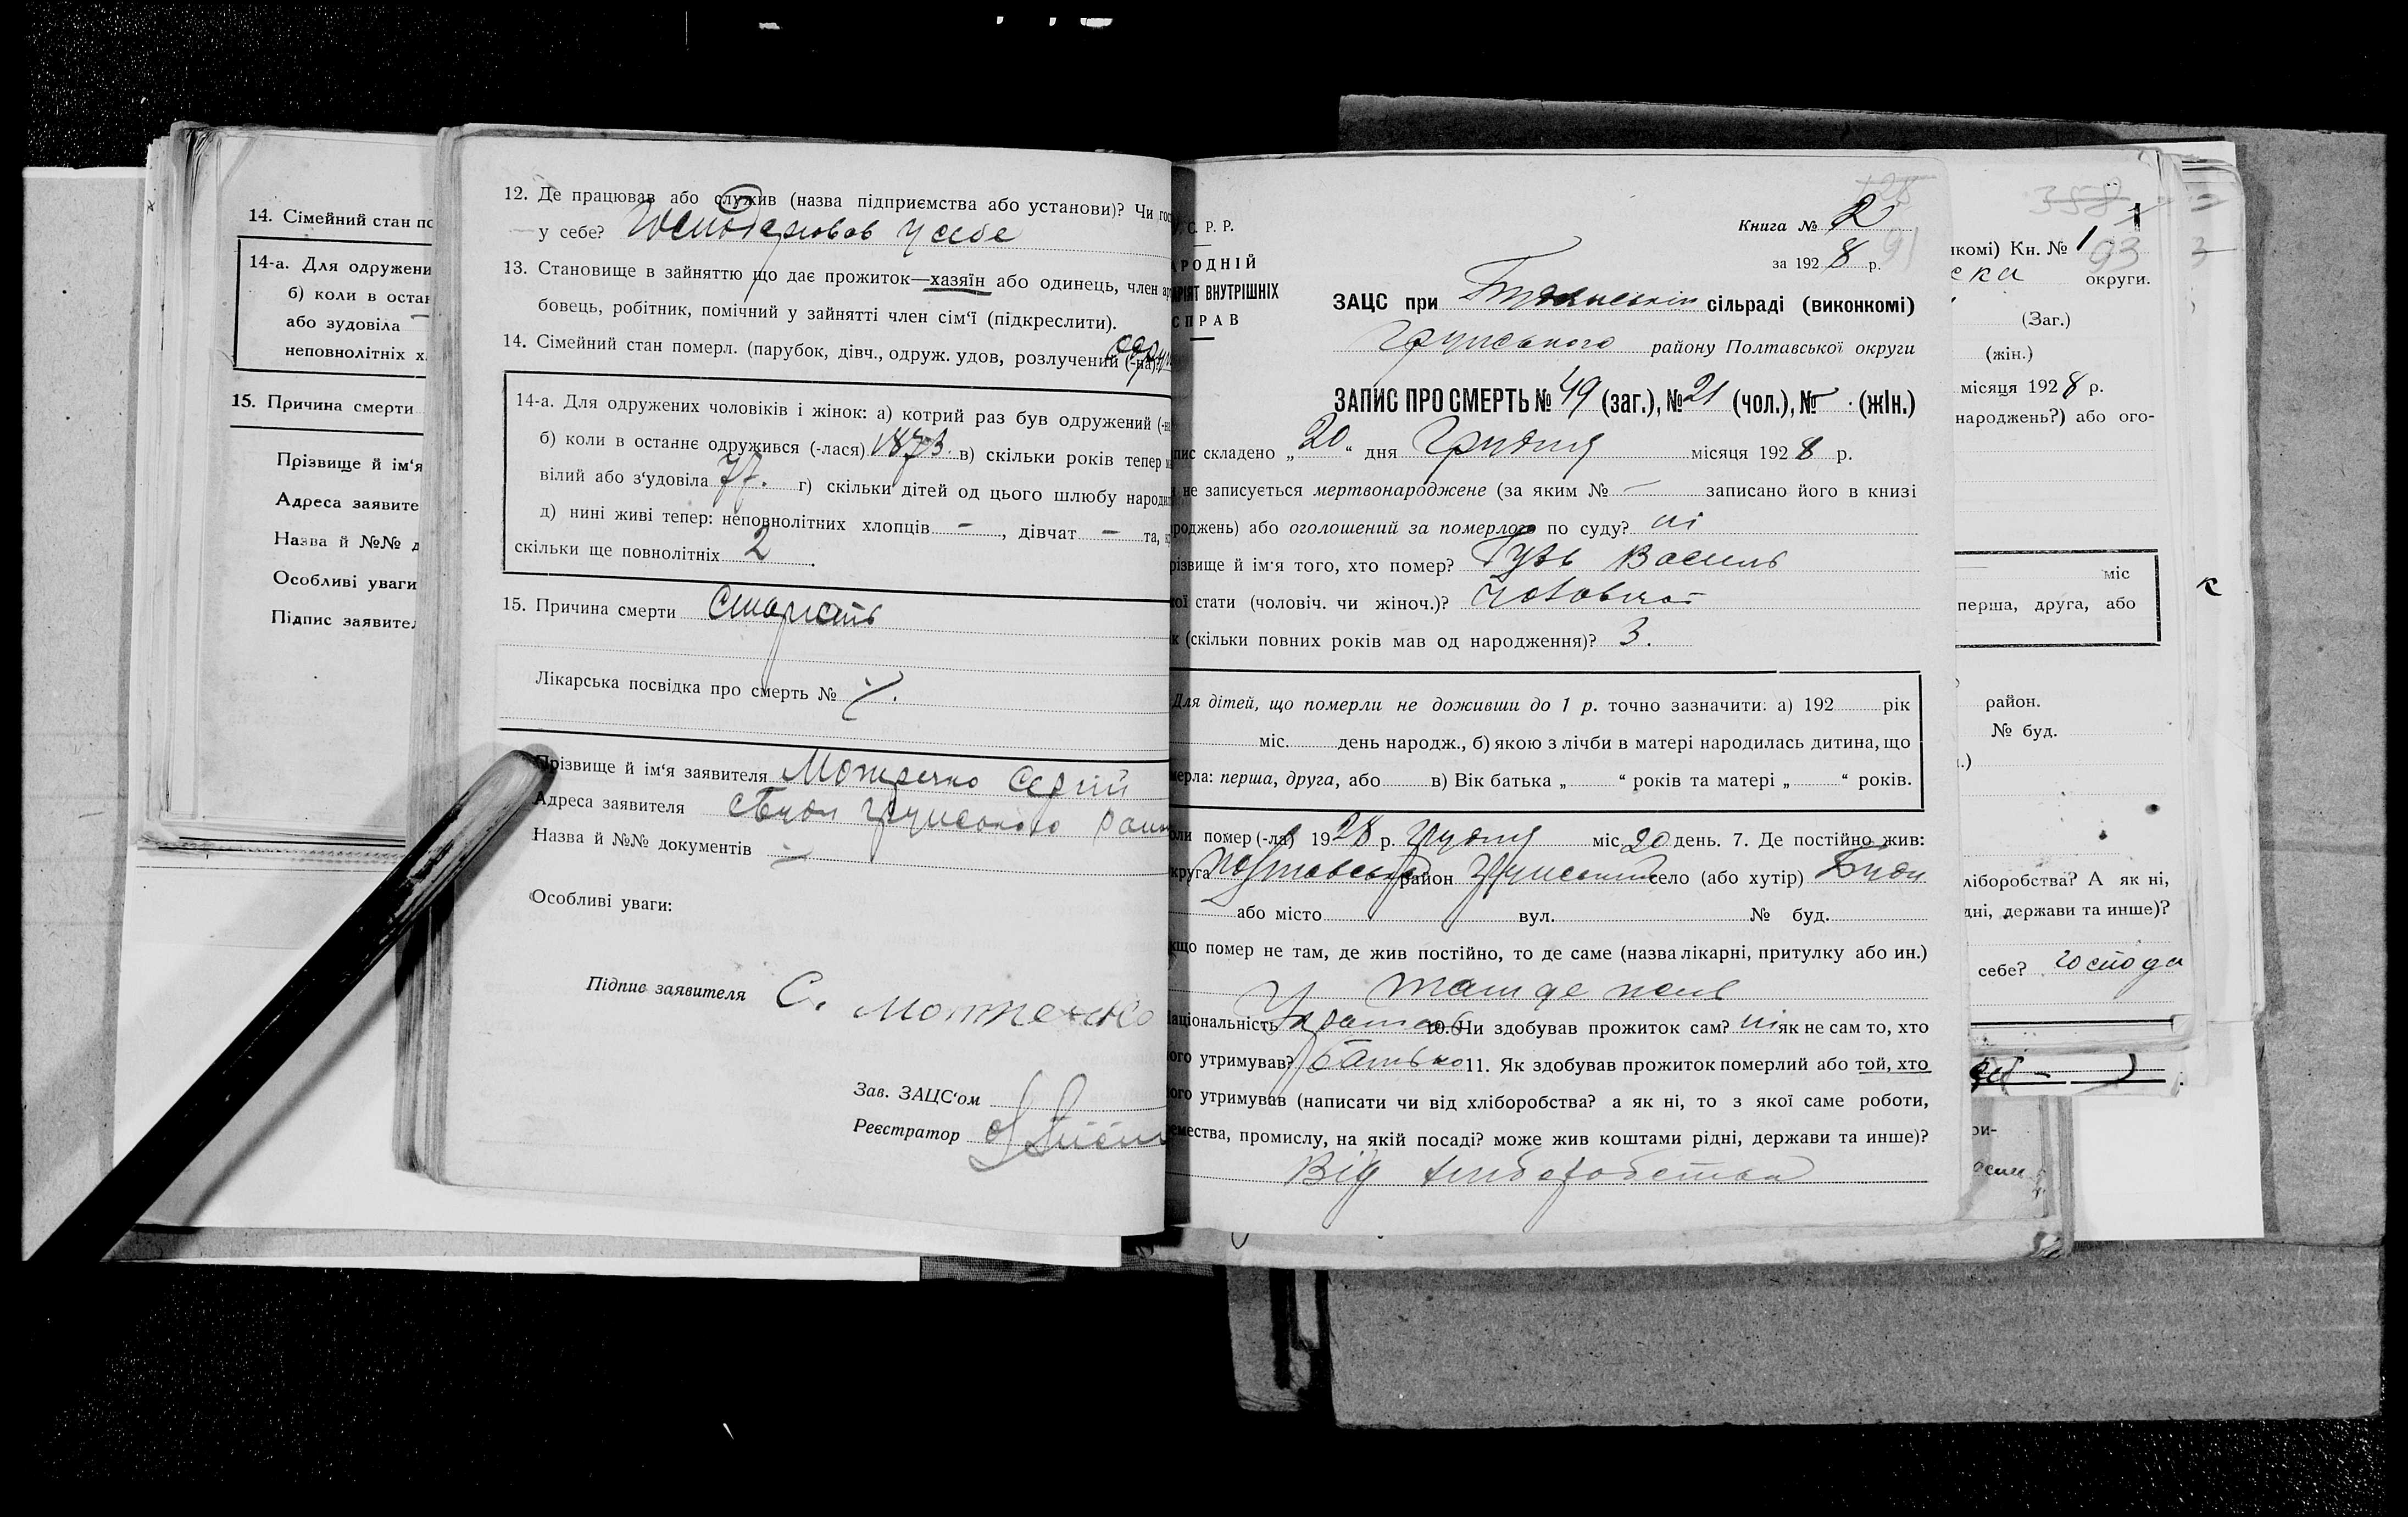 14. Сімейний стан по
14-а. Для одружени
б) коли в остан
або зудовіла
неповнолітніх х
15. Причина смерти
Прізвище й ім'я
Адреса заявите
Назва й №№ д
Особливі уваги
Підпис заявител
12. Де працював або служив (назва підприємства або установи)? Чи гос
у себе? Господарював у себе
13. Становище в зайняттю що дає прожиток—хазяїн або одинець, член ар
бовець, робітник, помічний у зайнятті член сім'ї (підкреслити).
14. Сімейний стан померл. (парубок, дівч., одруж. удов, розлучений (-на)?
14-а. Для одружених чоловіків і жінок: а) котрий раз був одружений (-на
б) коли в останнє одружився (-лася) 1873. в) скільки років тепер
вілий або з'удовіла 77. г) скільки дітей од цього шлюбу народи
д) нині живі тепер: неповнолітних хлопців – , дівчат – та,
скільки ще повнолітніх 2 .
15. Причина смерти Старість
Лікарська посвідка про смерть №
Прізвище й ім'я заявителя Сергій
Адреса заявителя Грунського
Назва й №№ документів —
Особливі уваги:
Підпис заявителя С.
Зав. ЗАЦС'ом
Реєстратор
С. Р. Р.
АРОДНІЙ
АРІЯТ ВНУТРІШНІХ
СПРАВ
Книга № 2
91
за 192 8 р.
ЗАЦС при сільраді (виконкомі)
Грунського району Полтавської округи
ЗАПИС ПРО СМЕРТЬ № 49 (заг.), № 21 (чол.), № – (жін.)
пис складено „ 20 “ дня Грудня місяця 192 8 р.
не записується мертвонароджене (за яким № – записано його в книзі
роджень) або оголошений за померлого по суду? ні
різвище й ім'я того, хто помер? Гузь Василь
кої стати (чоловіч. чи жіноч.)? Чоловічої
к (скільки повних років мав од народження)? 3.
Для дітей, що померли не доживши до 1 р. точно зазначити: а) 192 рік
міс. день народж., б) якою з лічби в матері народилась дитина, що
мерла: перша, друга, або в) Вік батька „ “ років та матері „ “ років.
оли помер (-ла) 1928 р. Грудня міс. 20 день. 7. Де постійно жив:
круга Полтавська район Грунський село (або хутір)
або місто вул. № буд.
кщо помер не там, де жив постійно, то де саме (назва лікарні, притулку або ин.)
там де жив
аціональність 10. Чи здобував прожиток сам? ні як не сам то, хто
ого утримував? батько 11. Як здобував прожиток померлий або той, хто
ого утримував (написати чи від хліборобства? а як ні, то з якої саме роботи,
емества, промислу, на якій посаді? може жив коштами рідні, держави та инше)?
Від хліборобства
358
нкомі) Кн. № 1
93
ска округи.
(Заг.)
(жін.)
місяця 192 8 р.
народжень?) або ого-
міс
перша, друга, або
район.
№ буд.
.)
ліборобства? А як ні,
дні, держави та инше)?
себе? господа
ри-